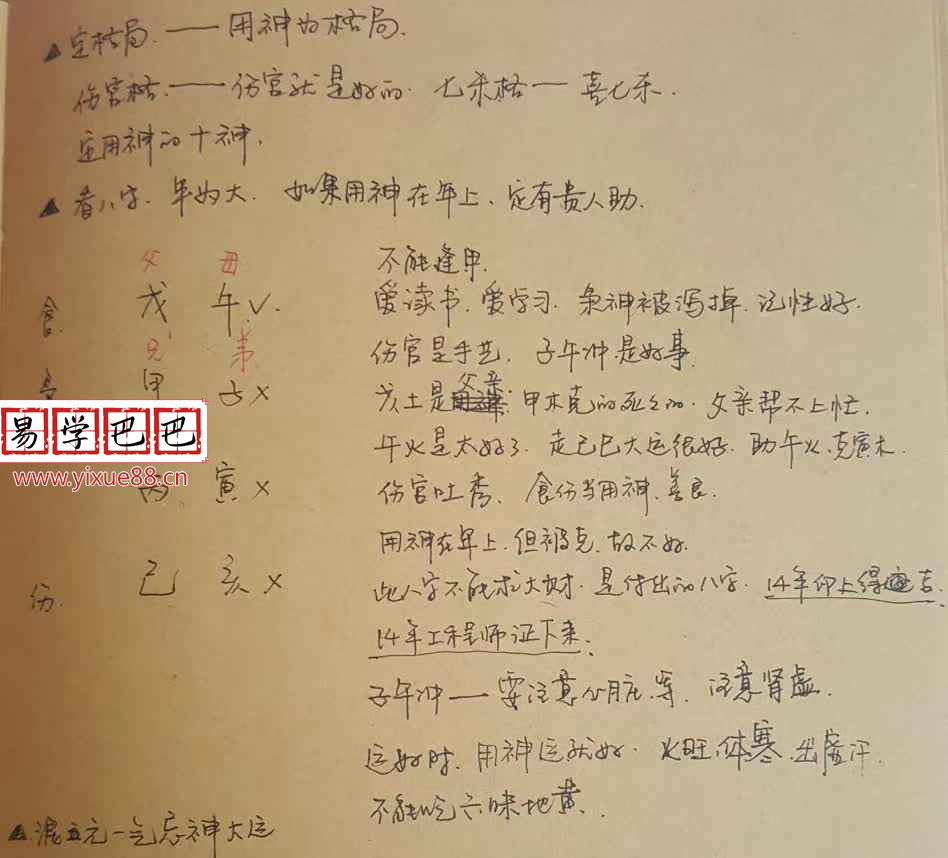 ▲定格局.——用神为格局.
伤官格.——伤官就是好的. 七杀格——喜七杀.
定用神的十神.
▲看八字.年为大. 如果用神在年上、定有贵人助.
父 母 不能逢甲.
食. 戊 午√. 爱读书.爱学习. 杀神被泻掉.记性好.
兄 弟 伤官是手艺. 子午冲是好事
甲 子× 戊土是父亲. 甲木克的死死的. 父亲帮不上忙.
午火是太好了. 走己巳大运很好. 助午火.克寅木.
易学巴巴
www.yixue88.cn
丙. 寅× 伤官吐秀. 食伤当用神.善良.
用神在年上.但被克.故不好.
伤. 己 亥× 此八字不能求大财. 是付出的八字. 14年印上得吉.
14年工程师证下来.
子午冲——要注意心脏.等. 注意肾虚.
运好时.用神运就好. 火旺.体寒.出虚汗.
不能吃六味地黄.
▲混元一气忌神大运